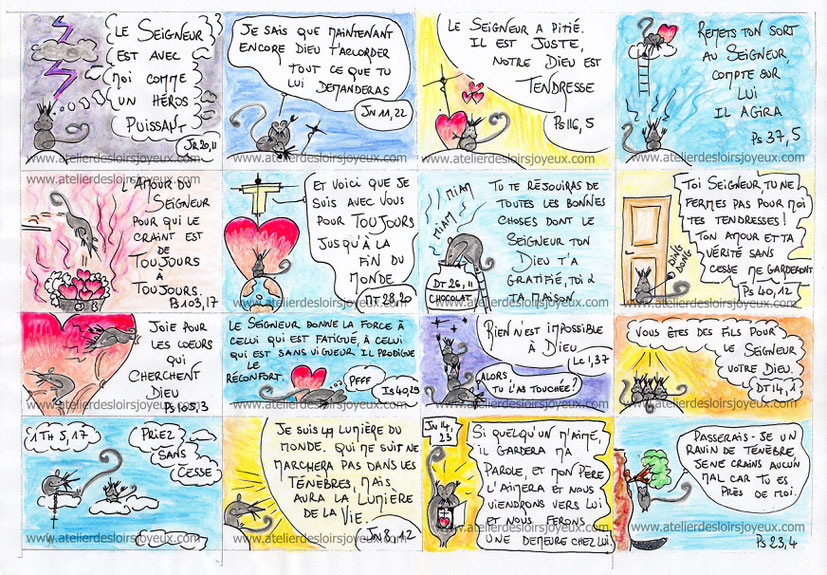 LE SEIGNEUR
EST AVEC
MOI COMME
UN HÉROS
PUISSANT
JR 20,11
JE SAIS QUE MAINTENANT
ENCORE DIEU T'ACCORDER
TOUT CE QUE TU
LUI DEMANDERAS
JN 11,22
LE SEIGNEUR A PITIÉ.
IL EST JUSTE,
NOTRE DIEU EST
TENDRESSE
PS 116,5
REMETS TON SORT
AU SEIGNEUR,
COMPTE SUR
LUI
IL AGIRA
PS 37,5
www.atelierdesloirsjoyeux.com
www.atelierdesloirsjoyeux.com
www.atelierdesloirsjoyeux.com
www.atelierdesloirsjoyeux.com
L'AMOUR DU
SEIGNEUR
POUR QUI LE
CRAINT EST
DE
TOUJOURS
À
TOUJOURS.
PS 103,17
ET VOICI QUE JE
SUIS AVEC VOUS
POUR TOUJOURS
JUSQU'À LA
FIN DU
MONDE
MT 28,20
MIAM
MIAM
TU TE RÉJOUIRAS DE
TOUTES LES BONNES
CHOSES DONT LE
SEIGNEUR TON
DIEU T'A
GRATIFIÉ, TOI &
TA MAISON.
DT 26,11
CHOCOLAT
TOI SEIGNEUR, TU NE
FERMES PAS POUR MOI
TES TENDRESSES!
TON AMOUR ET TA
VÉRITÉ SANS
CESSE ME GARDERONT
DING
DONG
PS 40,12
www.atelierdesloirsjoyeux.com
www.atelierdesloirsjoyeux.com
www.atelierdesloirsjoyeux.com
www.atelierdesloirsjoyeux.com
JOIE POUR
LES COEURS
QUI
CHERCHENT
DIEU
PS 105,3
LE SEIGNEUR DONNE LA FORCE À
CELUI QUI EST FATIGUÉ, À CELUI
QUI EST SANS VIGUEUR IL PRODIGUE
LE
RÉCONFORT.
PFFF
IS 40,29
RIEN N'EST IMPOSSIBLE
À DIEU
LC 1,37
ALORS
TU L'AS TOUCHÉE?
VOUS ÊTES DES FILS POUR
LE SEIGNEUR
VOTRE DIEU.
DT 14,1
www.atelierdesloirsjoyeux.com
www.atelierdesloirsjoyeux.com
www.atelierdesloirsjoyeux.com
www.atelierdesloirsjoyeux.com
1 TH 5,17
PRIEZ
SANS
CESSE
JE SUIS LA LUMIÈRE DU
MONDE. QUI ME SUIT NE
MARCHERA PAS DANS LES
TÉNÈBRES, MAIS
AURA LA LUMIÈRE
DE LA VIE.
JN 8,12
JN 14,
23
SI QUELQU'UN M'AIME,
IL GARDERA MA
PAROLE, ET MON PÈRE
L'AIMERA ET NOUS
VIENDRONS VERS LUI
ET NOUS FERONS
UNE DEMEURE CHEZ LUI.
PASSERAIS-JE UN
RAVIN DE TÉNÈBRE,
JE NE CRAINS AUCUN
MAL CAR TU ES
PRÈS DE MOI.
PS 23,4
www.atelierdesloirsjoyeux.com
www.atelierdesloirsjoyeux.com
www.atelierdesloirsjoyeux.com
www.atelierdesloirsjoyeux.com